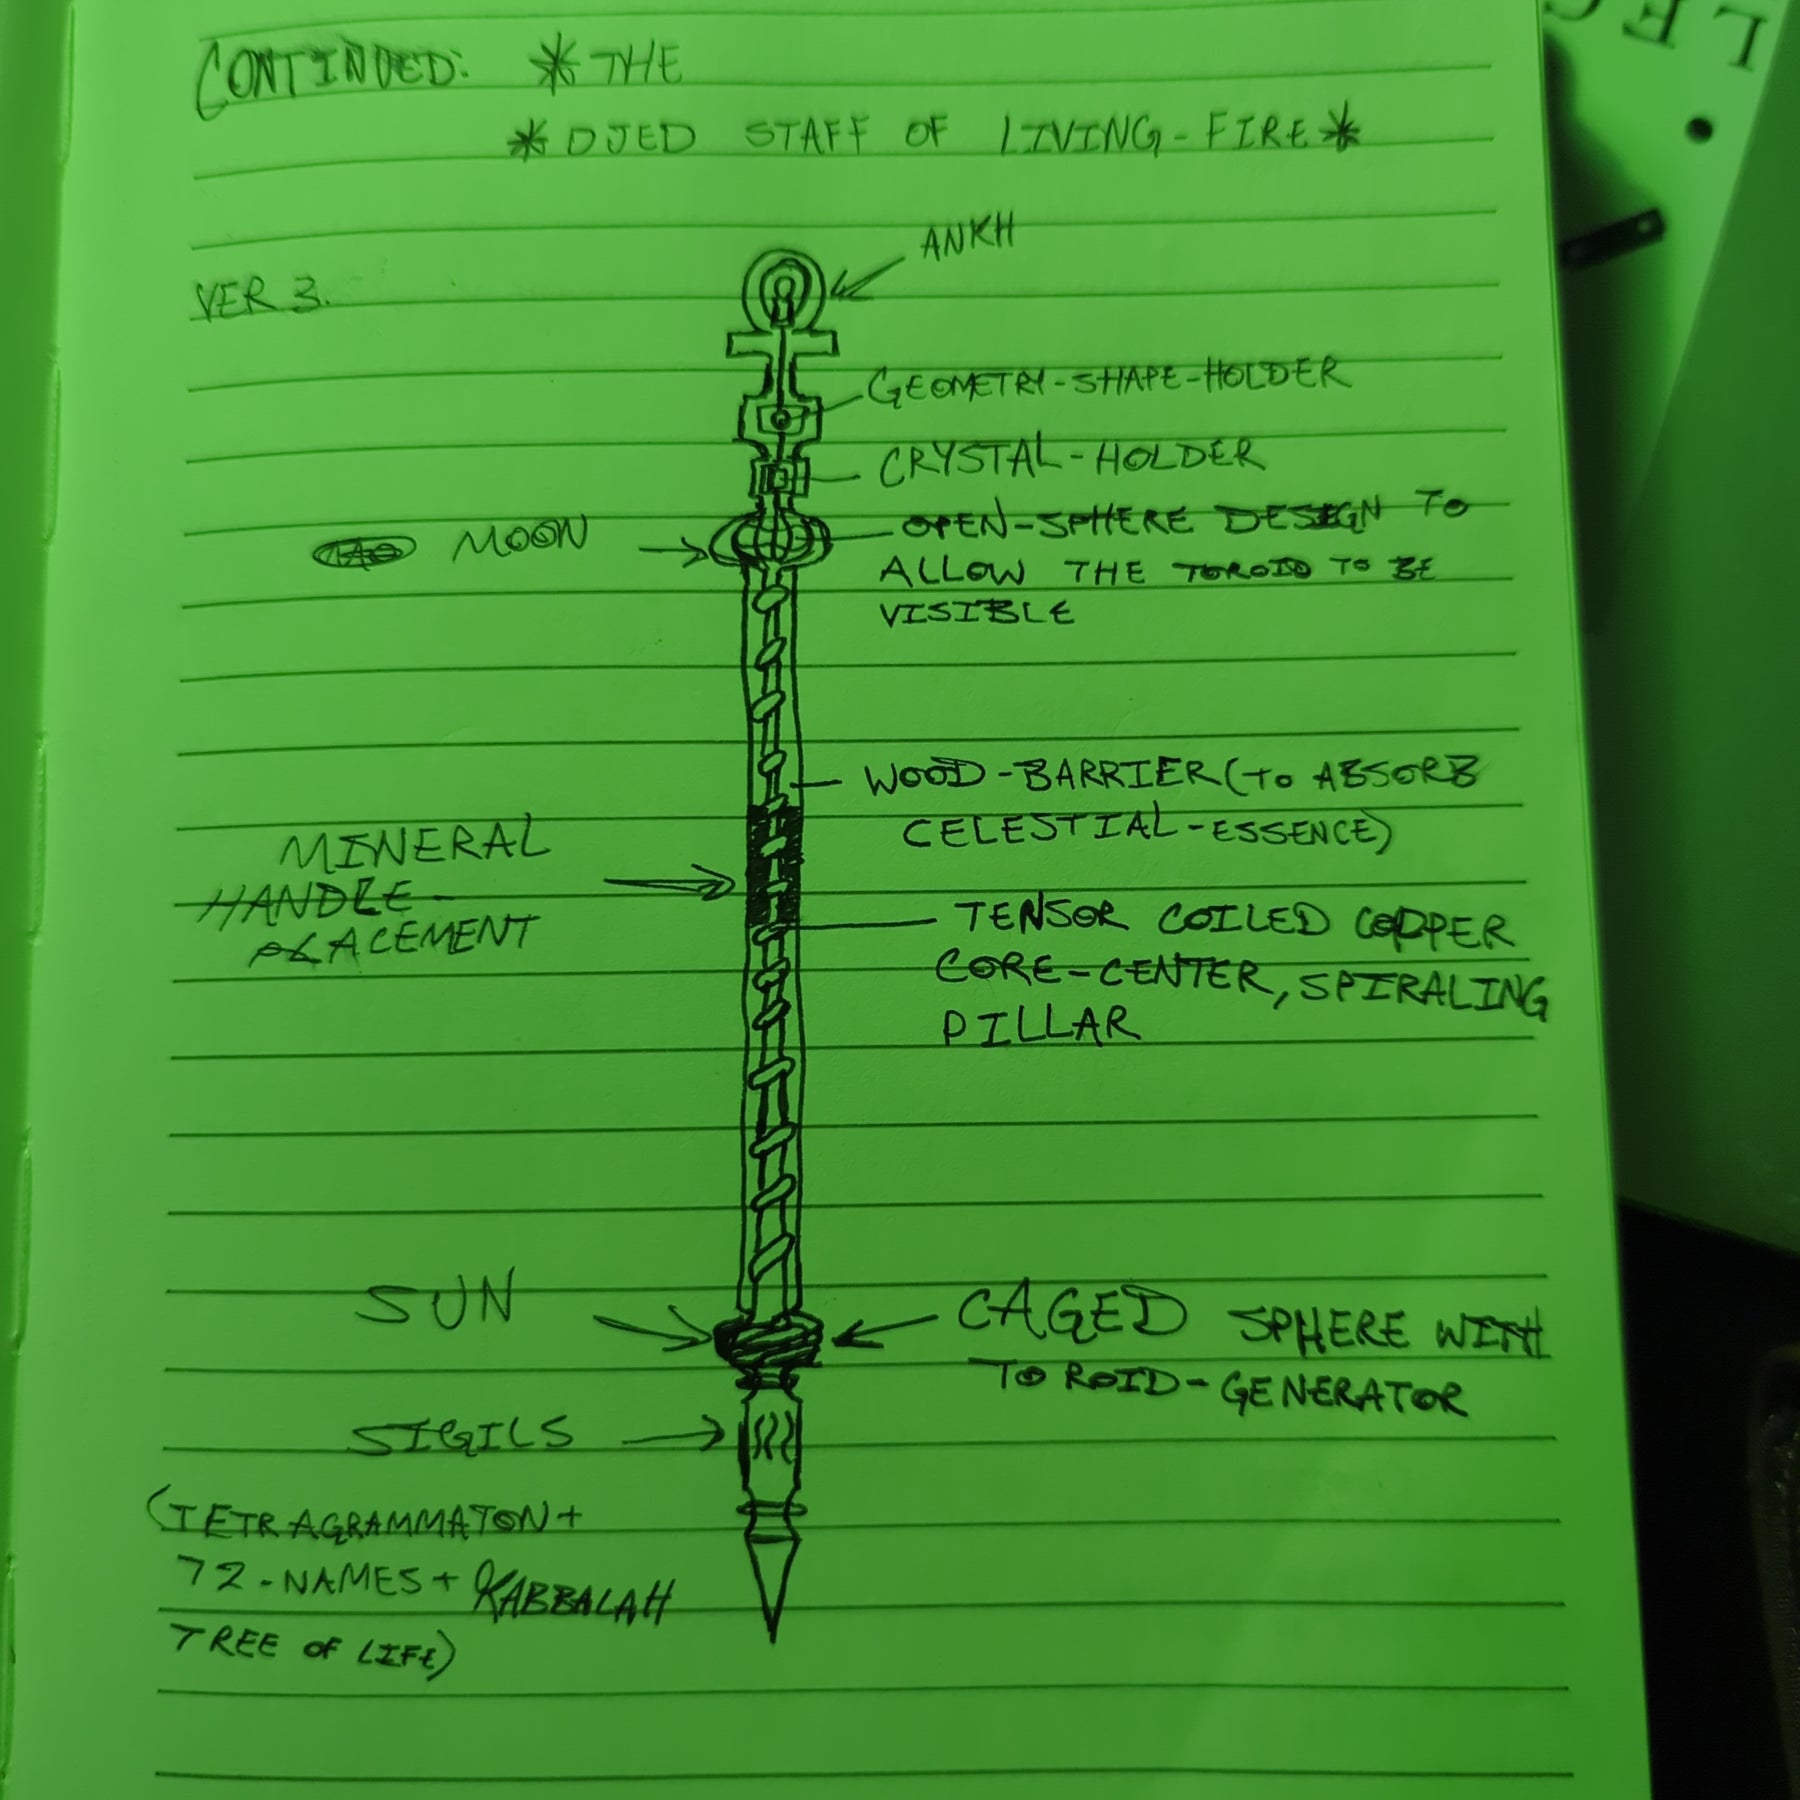 CONTINUED: *THE
*DJED STAFF OF LIVING-FIRE*
ANKH
VER 3.
GEOMETRY-SHAPE-HOLDER
CRYSTAL-HOLDER
MOON
OPEN-SPHERE DESIGN TO
ALLOW THE TOROID TO BE
VISIBLE
WOOD-BARRIER (TO ABSORB
CELESTIAL-ESSENCE)
MINERAL
HANDLE-
PLACEMENT
TENSOR COILED COPPER
CORE-CENTER, SPIRALING
PILLAR
SUN
CAGED SPHERE WITH
TOROID-GENERATOR
SIGILS
(TETRAGRAMMATON +
72-NAMES + KABBALAH
TREE OF LIFE)